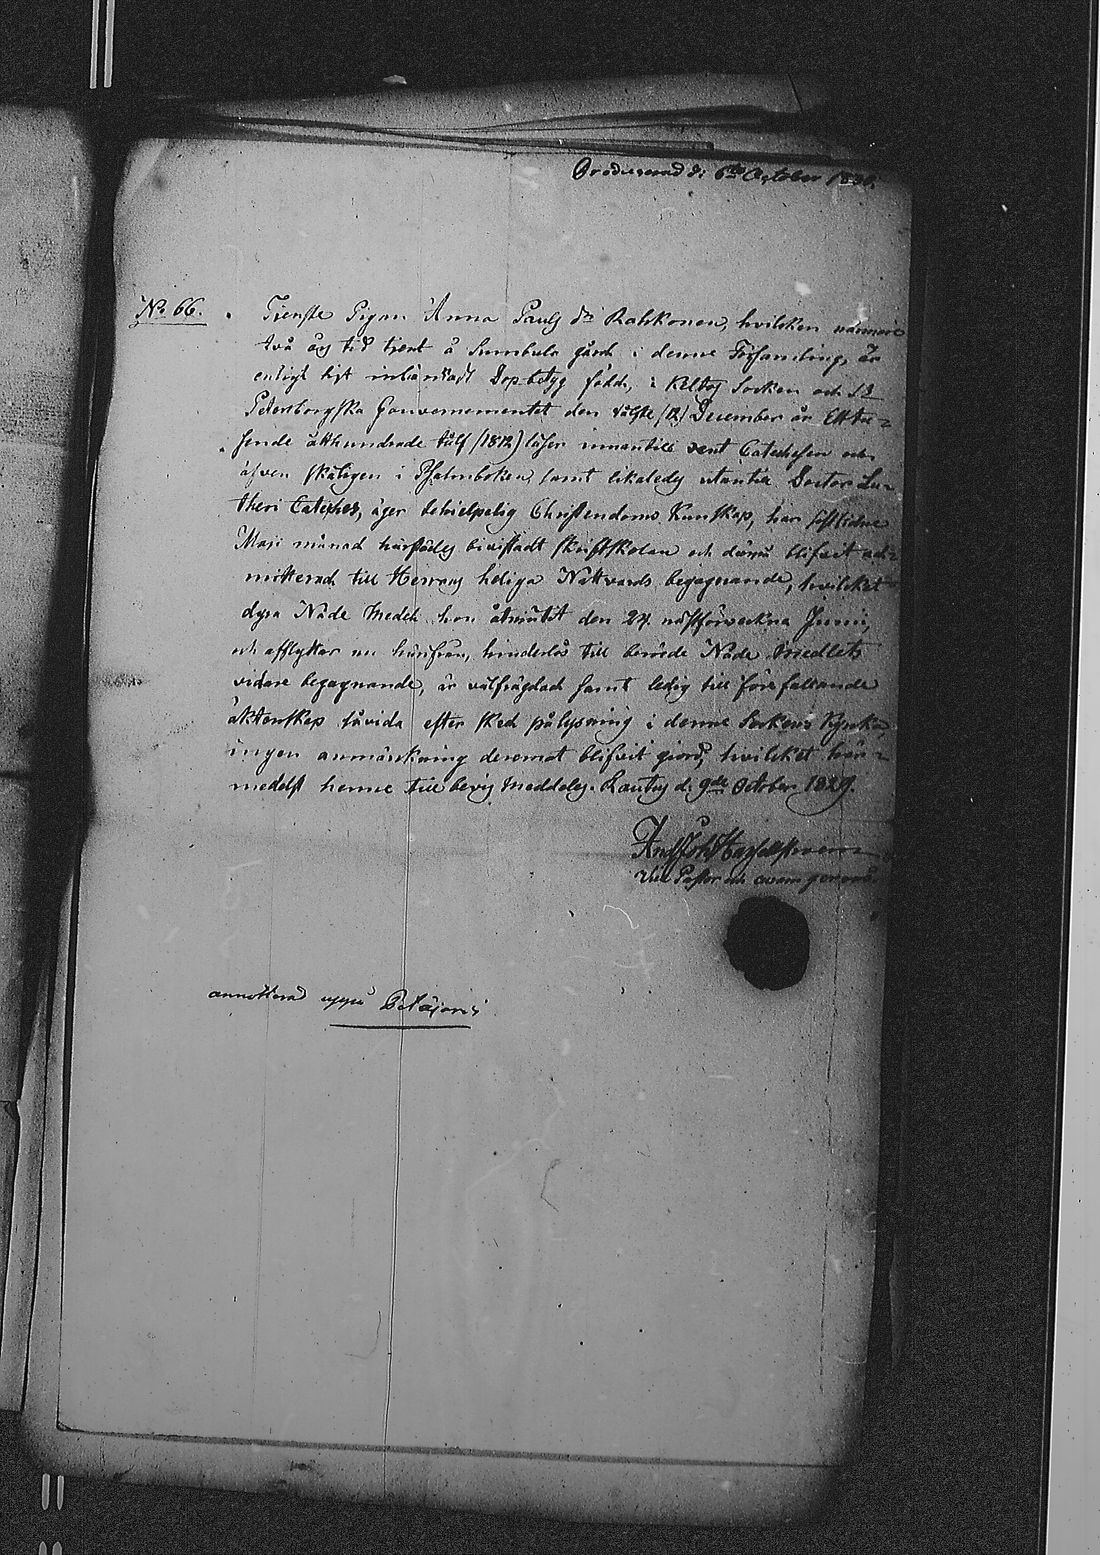 Producerad d: 6te October 1830.
No 66. Tienste Pigan Anna Pauls dr Rahkonen, hvilken närmare
två års tid tjent å Sumbula gård i denne Församling, är
enligt hit inlämnadt Dop-betyg född, i Keltos Socken och St
Petersborgska Gouvernementet den tolfte (12) December år Ettu-
sende åttahundrade tolf (1812) läser innantill rent Catechesen och
äfven skäligen i Psalmboken, samt likaledes utantill Doctor Lu-
theri Cateches, äger behielpelig Christendoms Kunskap, har sistlidne
Maji månad härstädes bivistadt skriftskolan och därå blifvit ad-
mitterad till Herrans heliga Nattvards begagnande, hvilket
dyra Nåde Medel hon åtniutit den 24 nästförvekna Junii,
och afflyttar nu härifrån, hinderlös till berörde Nåde Medlets
vidare begagnande, är välfrägdad samt ledig till förefallande
äktenskap såvida efter sked pålysning i denne Sockens Kyrka,
ingen anmärkning deremot blifvit giord, hvilket här-
medelst henne till bevis Meddeles. Rautus d. 9de October 1829.
Vice Pastor
annotterad uppå Petäjärvi